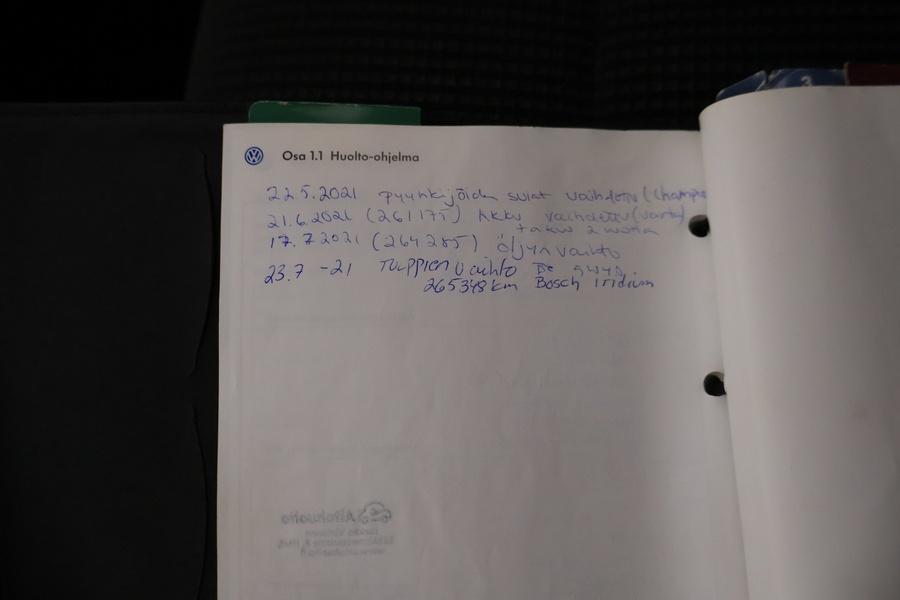 Osa 1.1 Huolto-ohjelma
22.5.2021 pyyhkijöiden sulat vaihdettu (Champ
21.6.2021 (261175) Akku vaihdettu (Varta)
takuu 2 vuotta
17.7.2021 (264285) öljyn vaihto
23.7 -21 Tulppien vaihto
265348 km Bosch Iridium
3